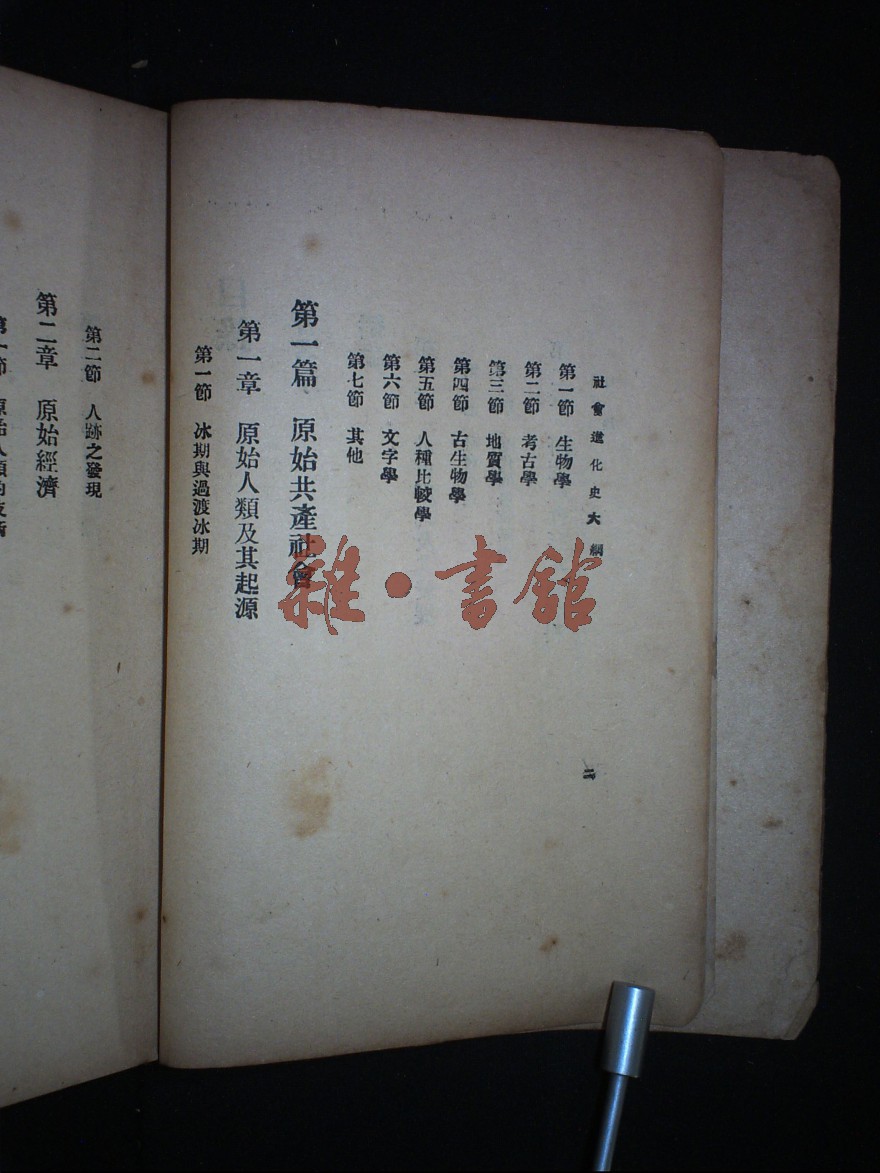 社會進化史大綱
二
第一節 生物學
第二節 考古學
第三節 地質學
第四節 古生物學
第五節 人種比較學
第六節 文字學
第七節 其他
第一篇 原始共產社會
第一章 原始人類及其起源
第一節 冰期與過渡冰期
第二節 人跡之發現
第二章 原始經濟
第一節 原始人類的技術
雜·書館